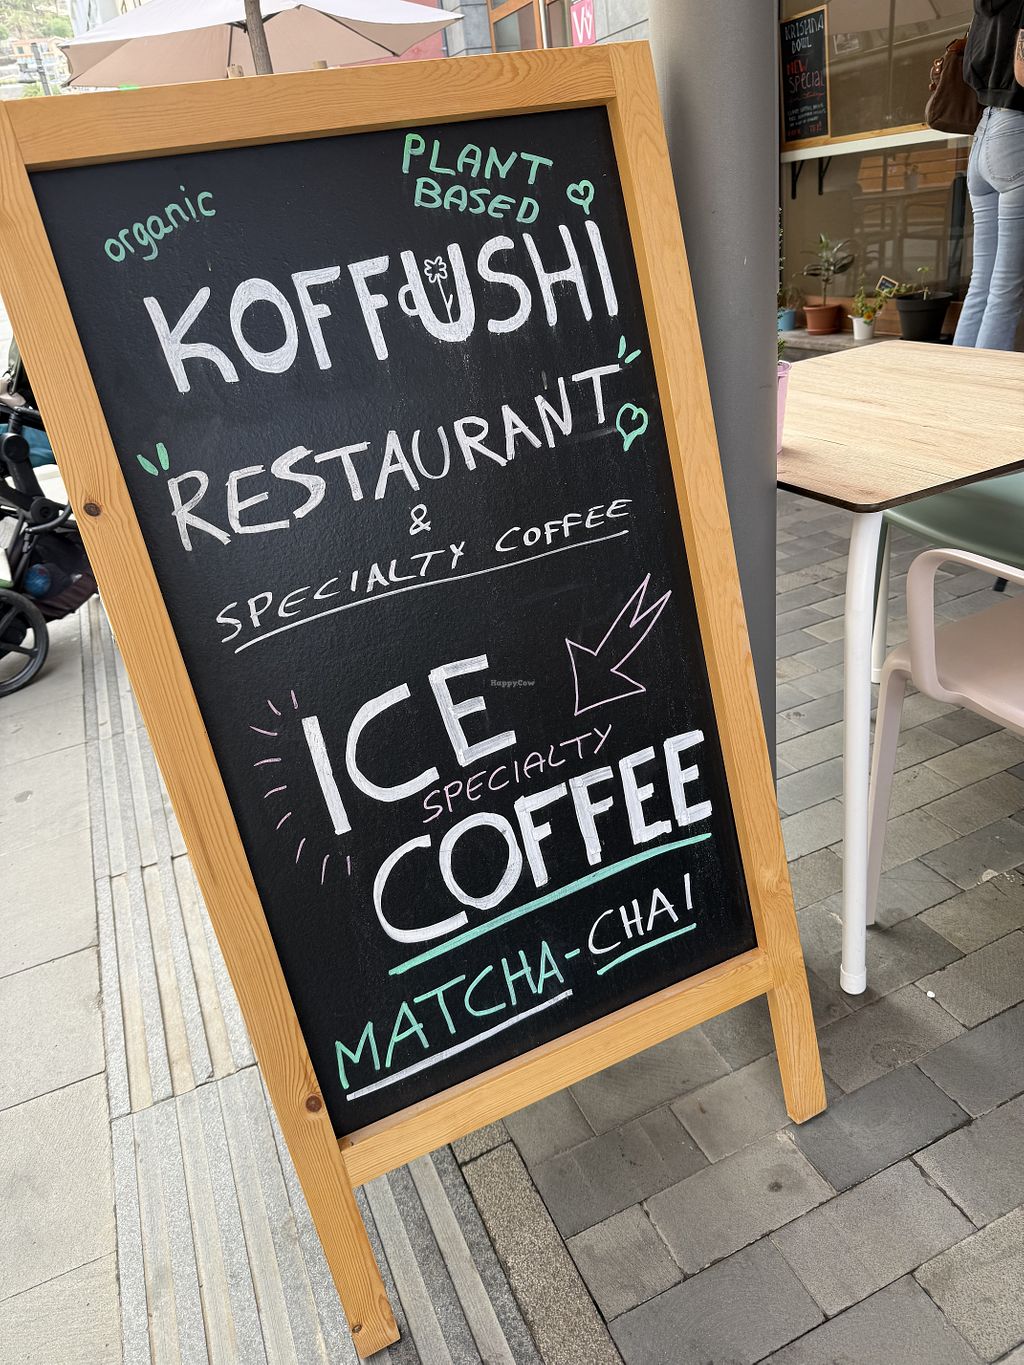 PLANT
BASED
organic
KOFFUSHI
RESTAURANT
&
SPECIALTY COFFEE
ICE
SPECIALTY
COFFEE
MATCHA-CHAI
HappyCow
KRISHNA
BOWL
NEW
SPECIAL